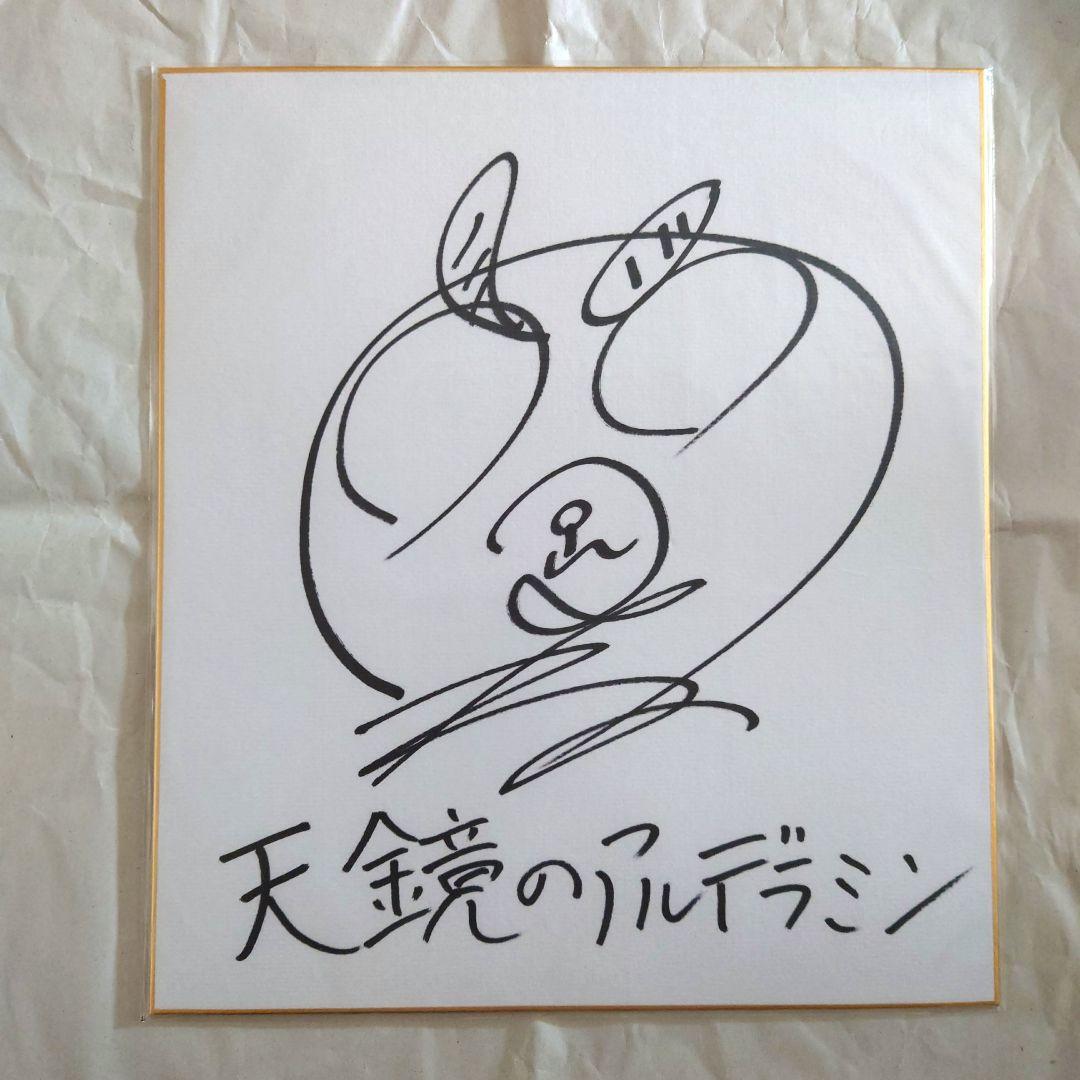 天鏡のアルデラミン